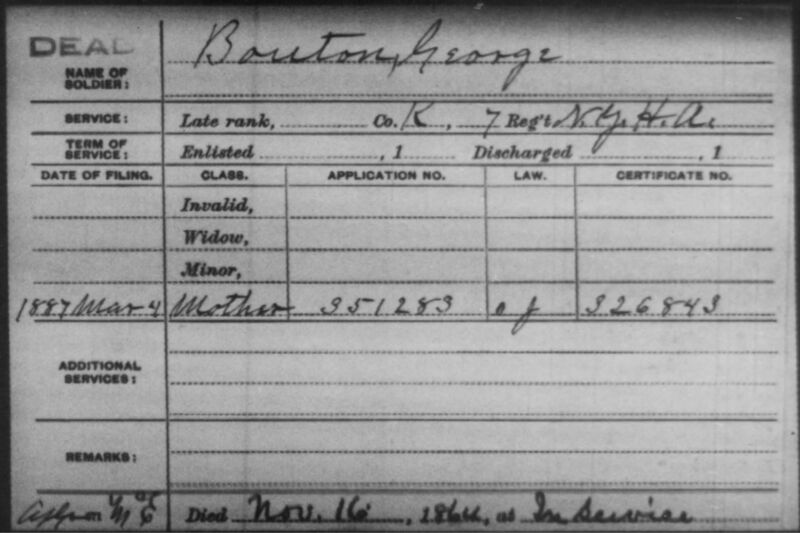 DEAD
NAME OF SOLDIER:
Bouton, George
SERVICE: Late rank, Co. K, 7 Reg't N.Y.H.A.
TERM OF SERVICE: Enlisted , 1 Discharged , 1
DATE OF FILING. CLASS. APPLICATION NO. LAW. CERTIFICATE NO.
Invalid,
Widow,
Minor,
1887 Mar 4 Mother 351283 326843
ADDITIONAL SERVICES:
REMARKS:
Died Nov. 16, 1864, at In service